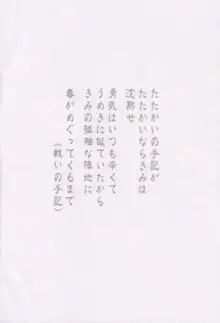 たたかいの手記が
たたかいならきみは
沈黙せ
勇気はいつも辛くて
うめきに似ていたから
きみの孤独な陣地に
春がめぐってくるまで
（戦いの手記）